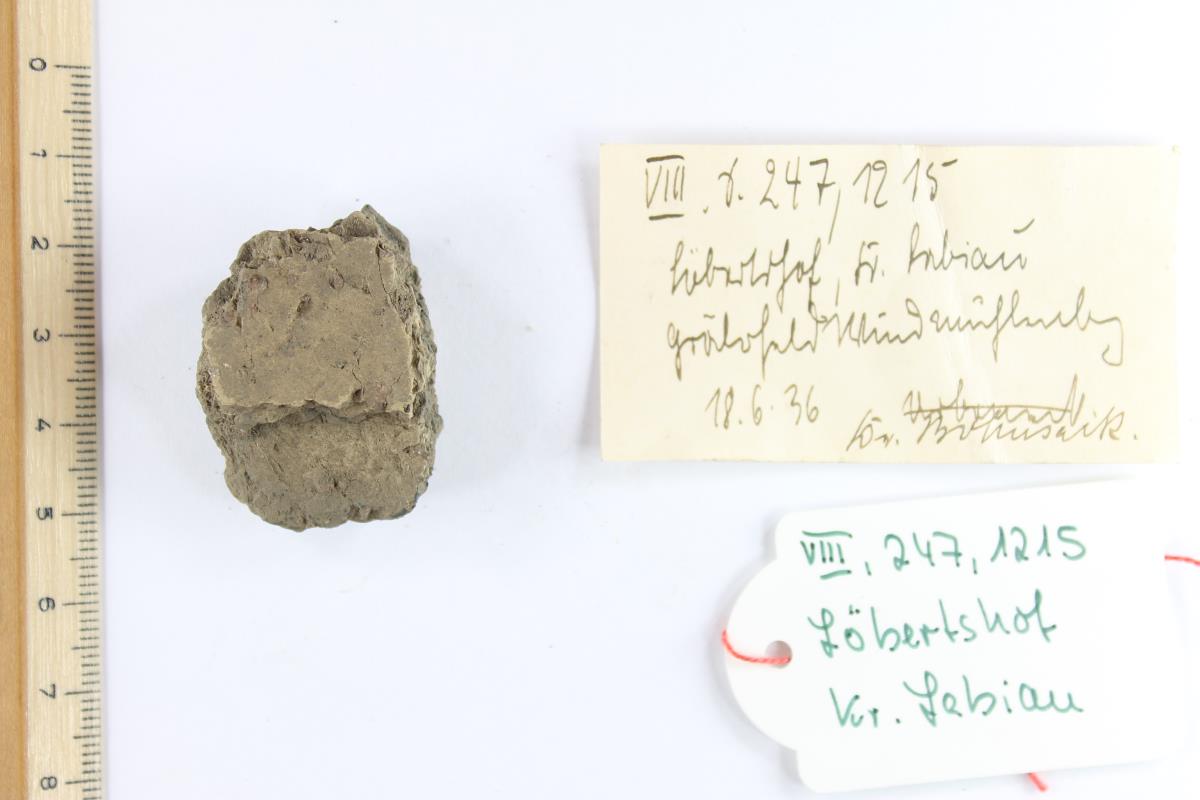 0
1
2
3
4
5
6
7
8
VIII. d. 247, 1215
Löbertshof, Kr. Labiau
Gräberfeld Windmühlenberg
18.6.36
Dr.
VIII, 247, 1215
Löbertshof
Kr. Labiau